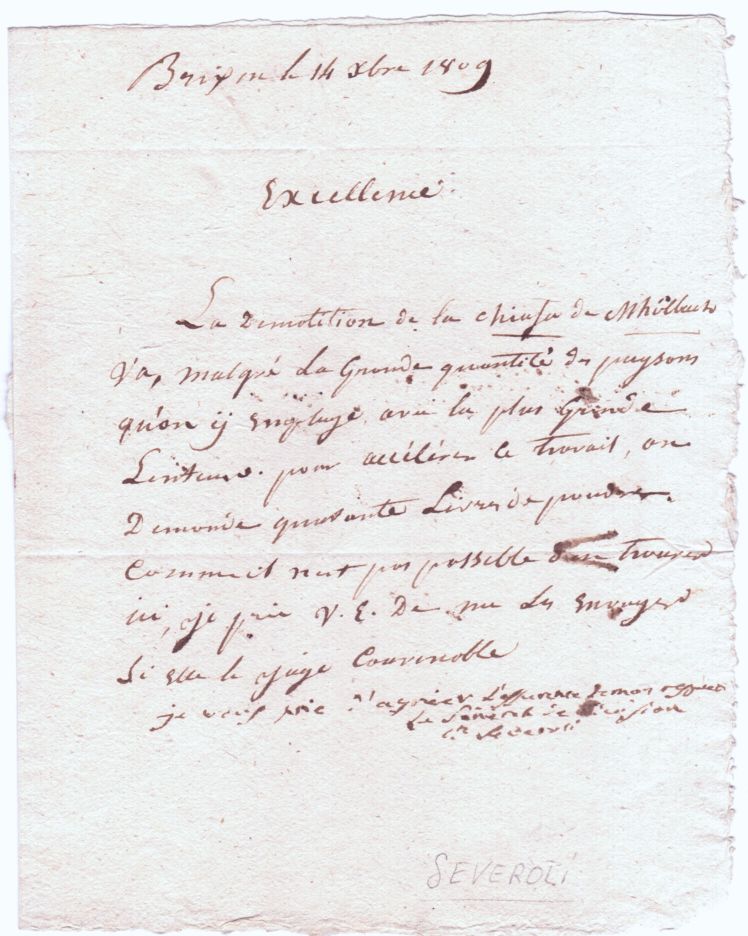 Brixen le 14 Xbre 1809
Excellence
La Demolition de la chiusa de Mhölbach
Va, malgré La Grande quantité des paysans
qu'on ÿ employe avec la plus Grande
Lenteur. pour accélérer ce travail, on
Demande quarante Livres de poudre.
Comme il n'est pas possible d'en trouver
ici, je prie V. E. De me les envoyer
Si elle le juge Convenable
je vous prie d'agréer L'assurance de mon respect
Le Général de Division
Severoli
SEVEROLI